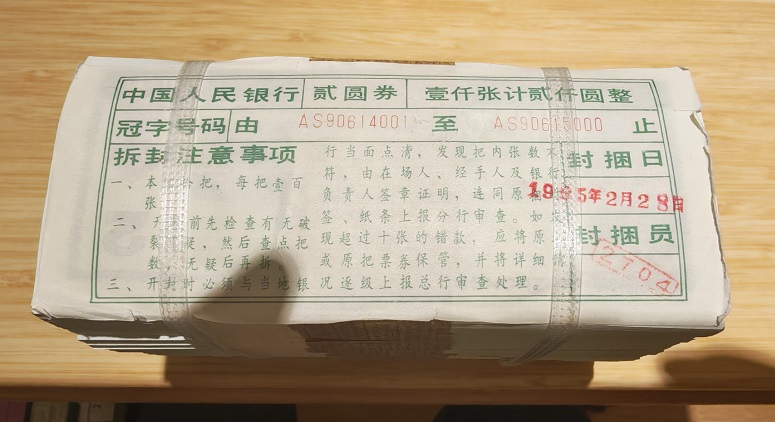 中国人民银行 贰圆券 壹仟张计贰仟圆整
冠字号码由 AS90614001 至 AS90615000 止
拆封注意事项
一、本 把，每把壹百
张
二、开 前先检查有无破
裂 ，然后查点把
数 无疑后再拆。
三、开封时必须与当地银
行当面点清，发现把内张数不
符，由在场人、经手人及银行
负责人签章证明，连同原
签、纸条上报分行审查。如
现超过十张的错款，应将原
或原把票券保管，并将详细情
况逐级上报总行审查处理。
封捆日
1995年2月28日
封捆员
2704